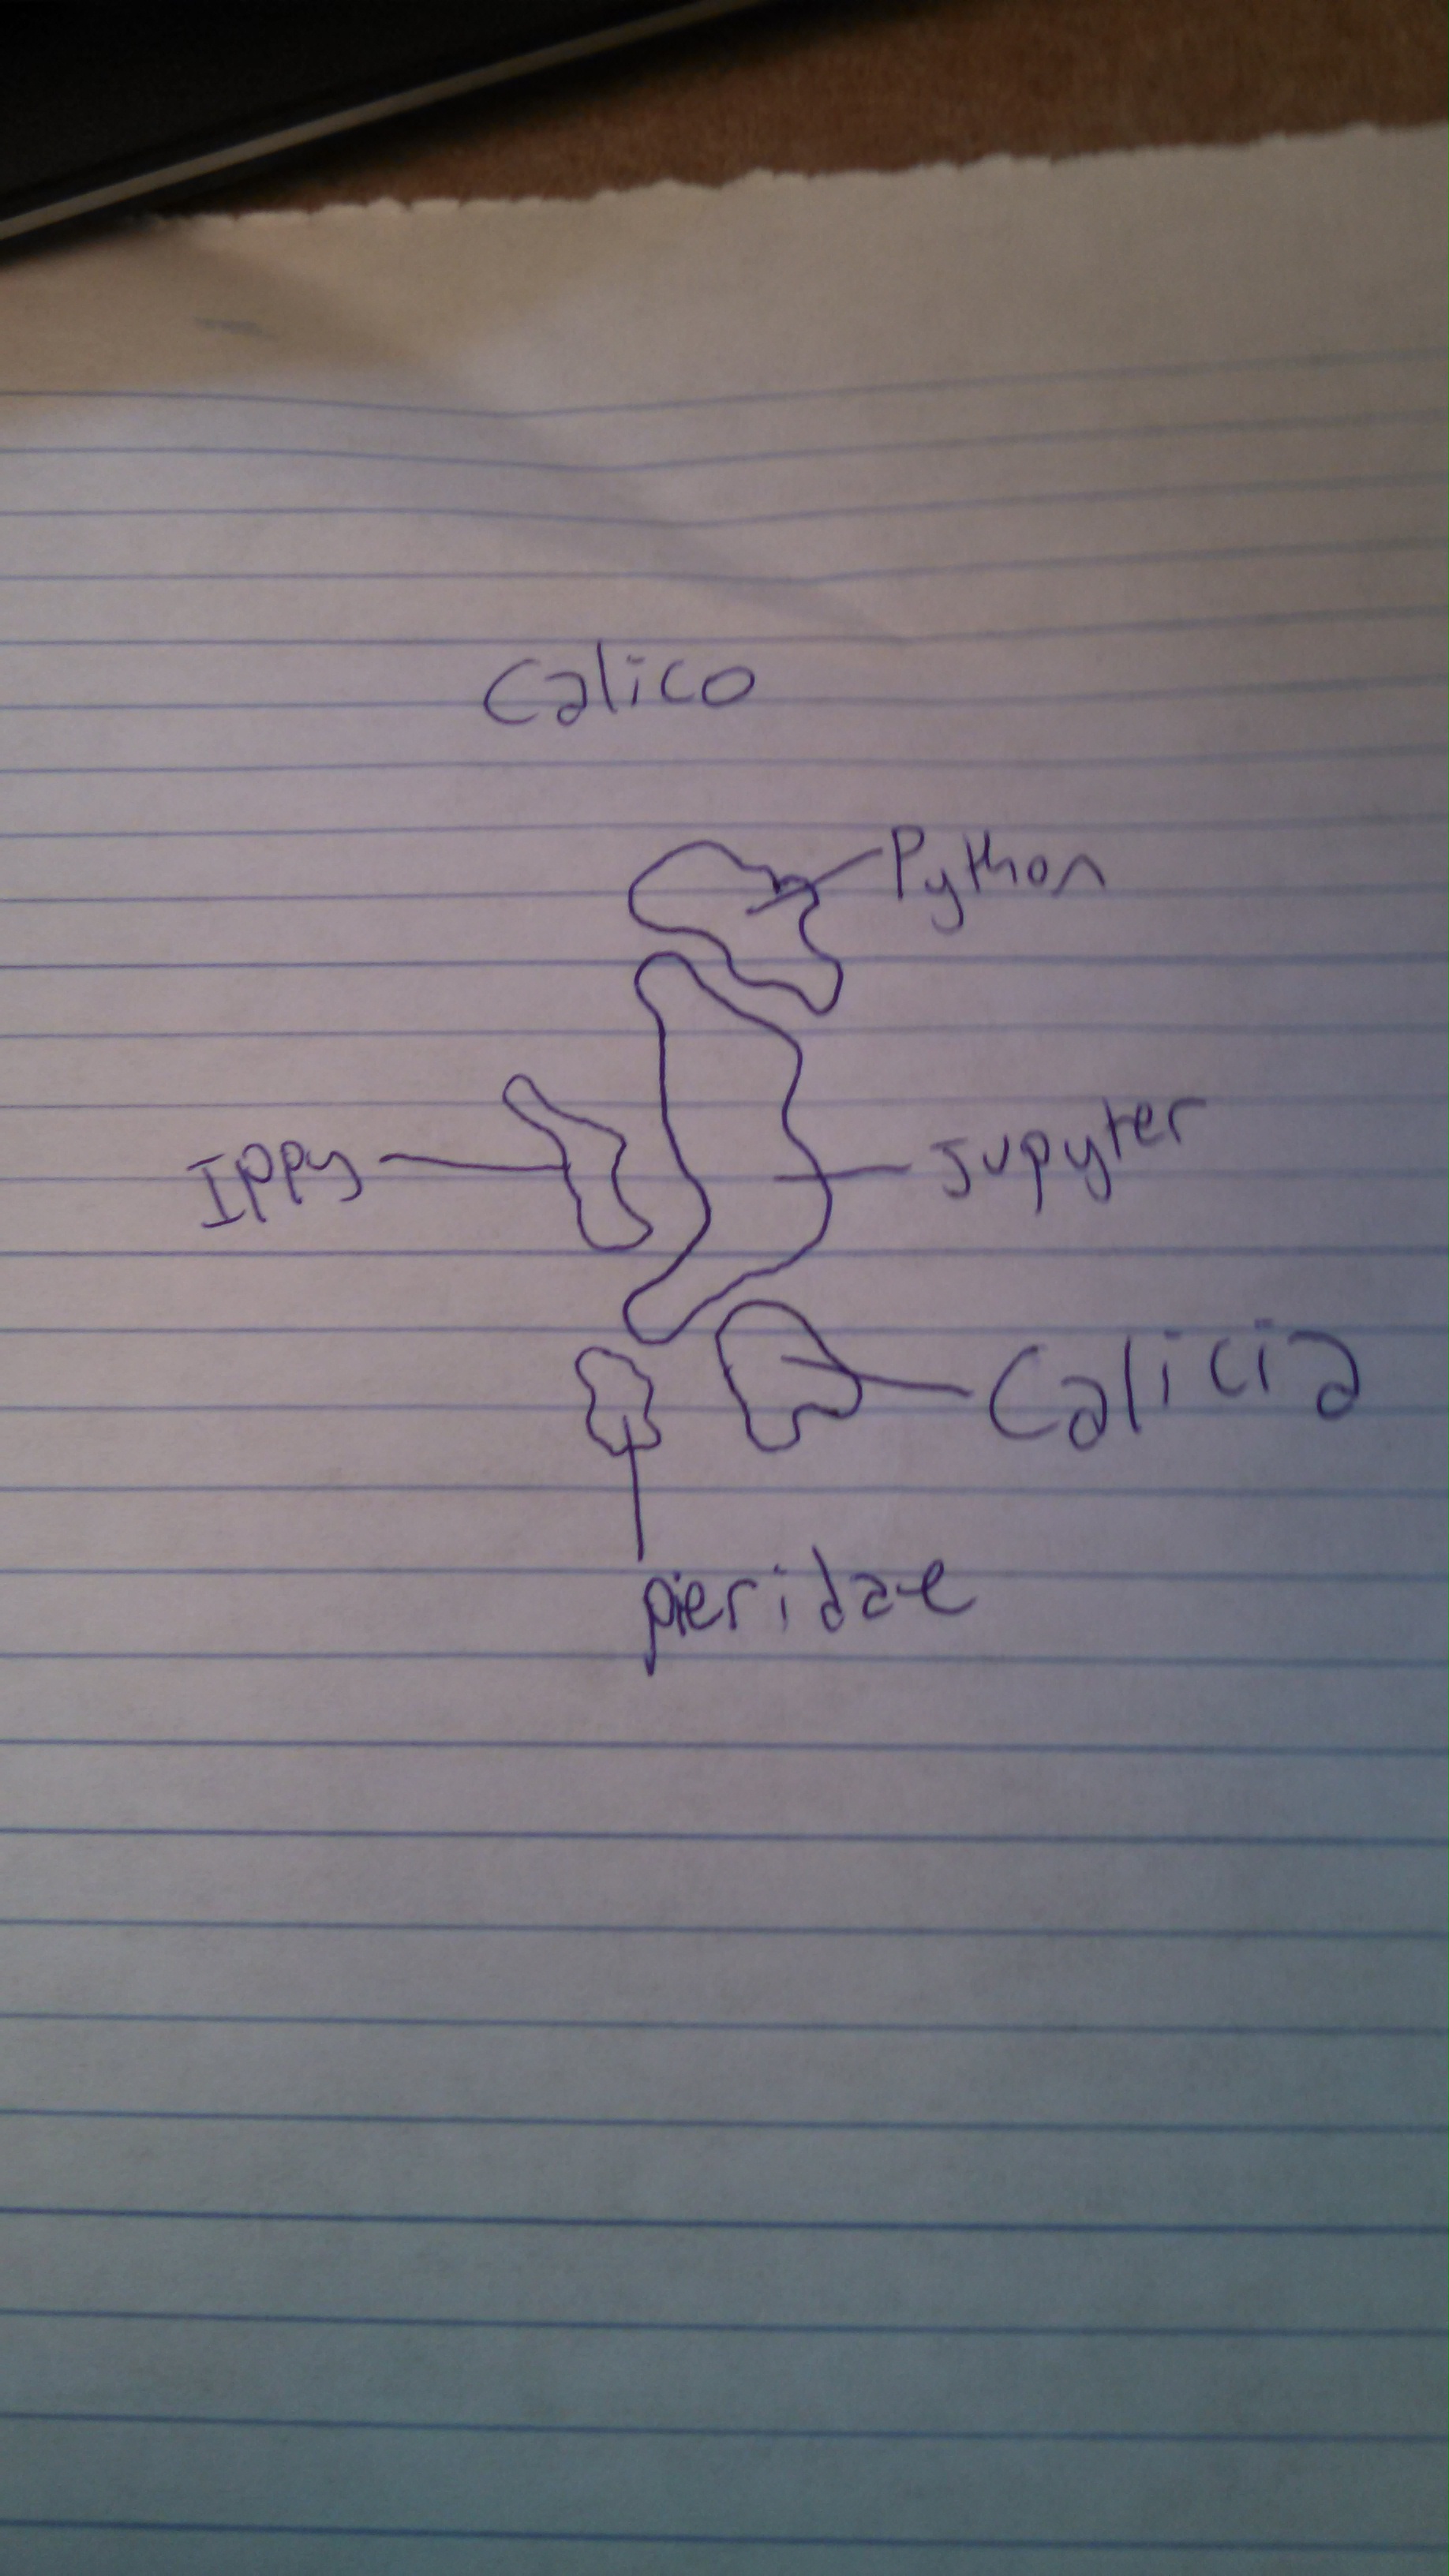 Calico
Python
Ippy
Jupyter
Calicia
pieridae